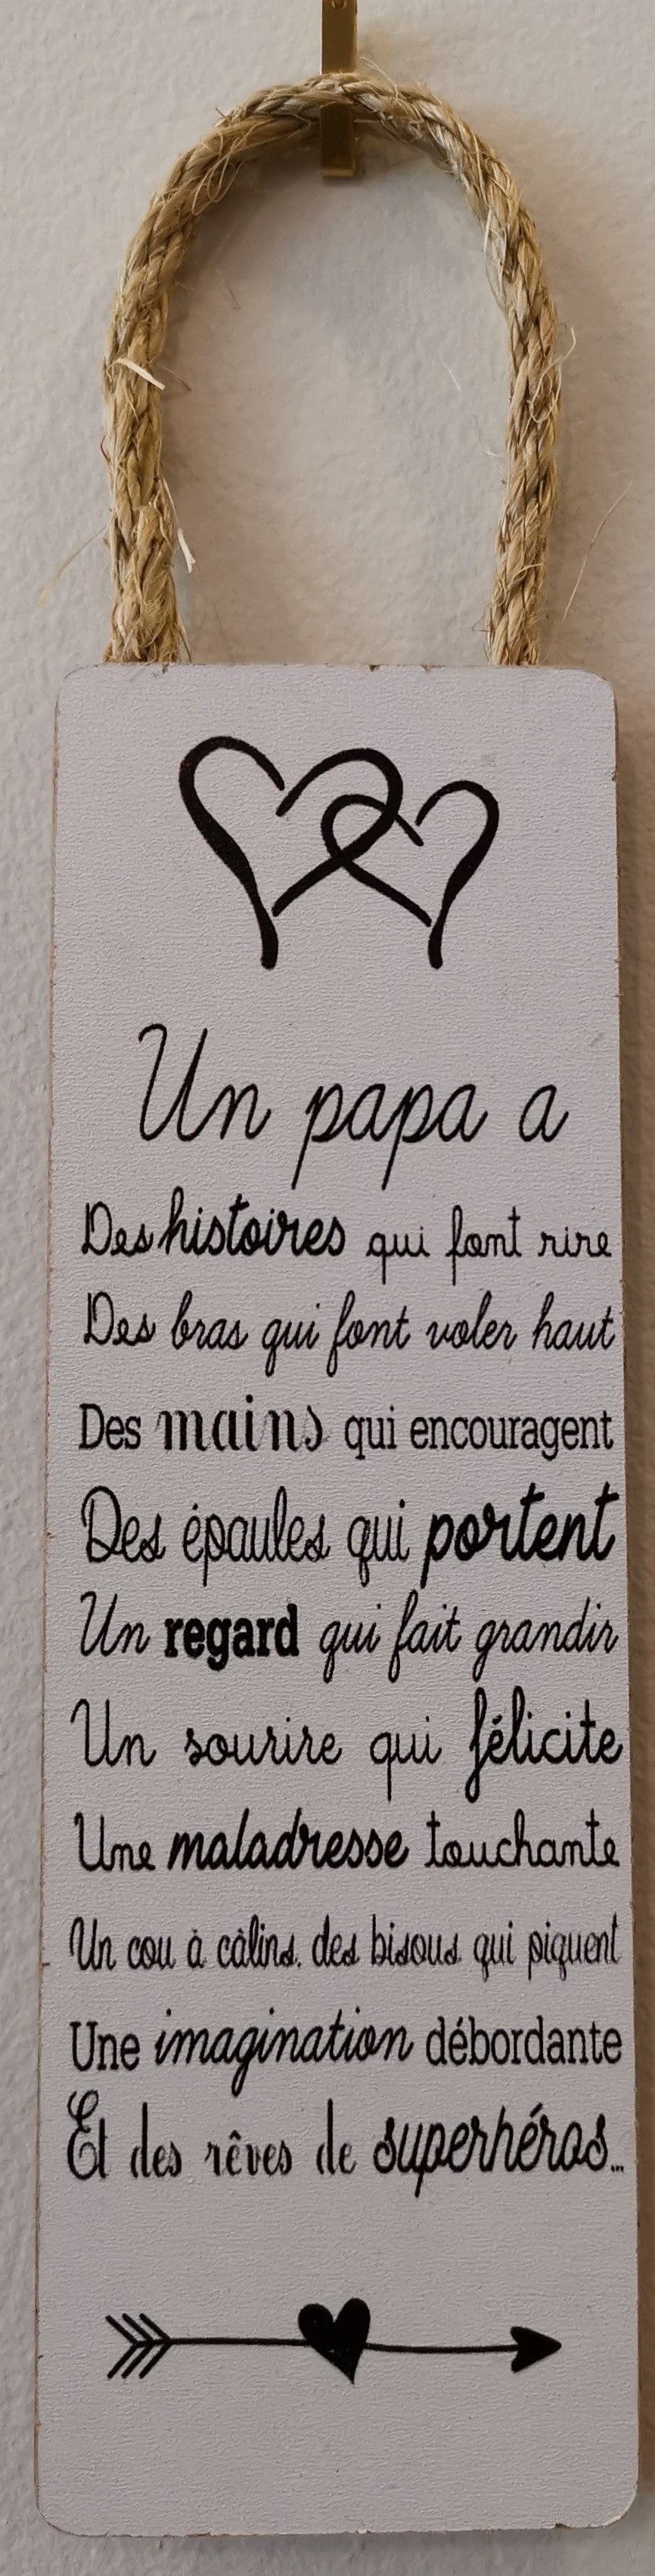 Un papa a
Des histoires qui font rire
Des bras qui font voler haut
Des mains qui encouragent
Des épaules qui portent
Un regard qui fait grandir
Un sourire qui félicite
Une maladresse touchante
Un cou à câlins. des bisous qui piquent
Une imagination débordante
Et des rêves de superhéros...